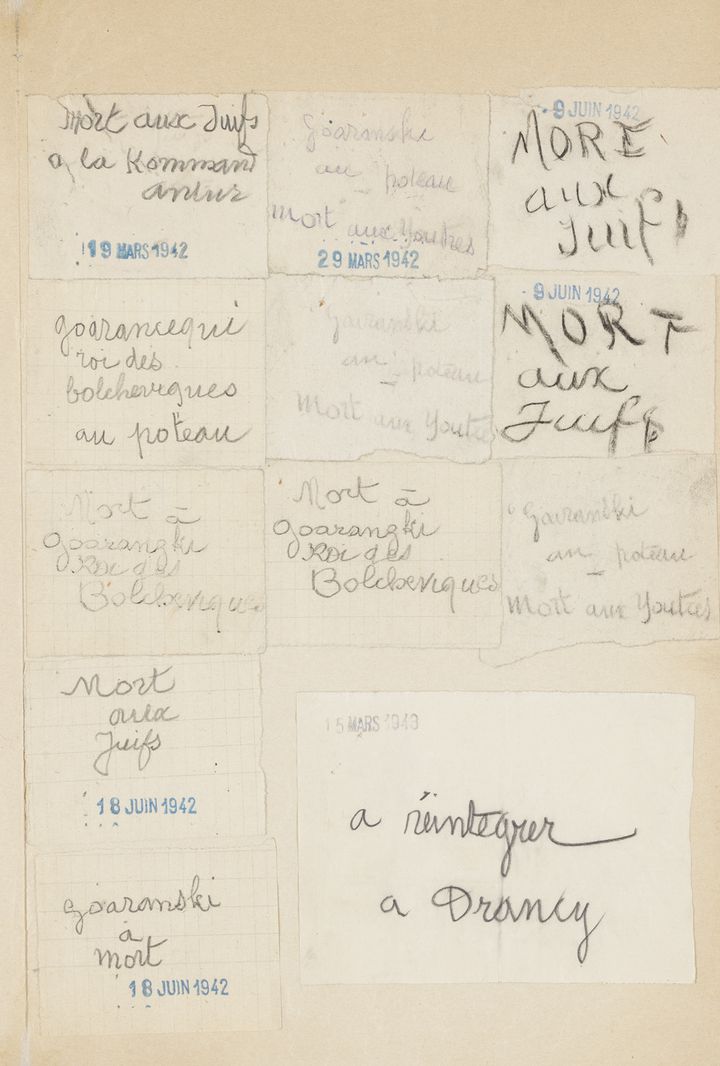 Mort aux Juifs
a la Kommand
antur
19 MARS 1942
goaranski
au poteau
Mort aux Youtres
29 MARS 1942
9 JUIN 1942
MORT
aux
Juifs
goarancequi
roi des
bolcheviques
au poteau
Gairanski
au poteau
Mort aux Youtres
9 JUIN 1942
MORT
aux
Juifs
Mort à
goarangki
Roi des
Bolcheviques
Mort à
goarangki
Roi des
Bolcheviques
Gairanski
au poteau
Mort aux Youtres
Mort
aux
Juifs
18 JUIN 1942
goaranski
à
mort
18 JUIN 1942
15 MARS 1943
a réintegrer
a Drancy